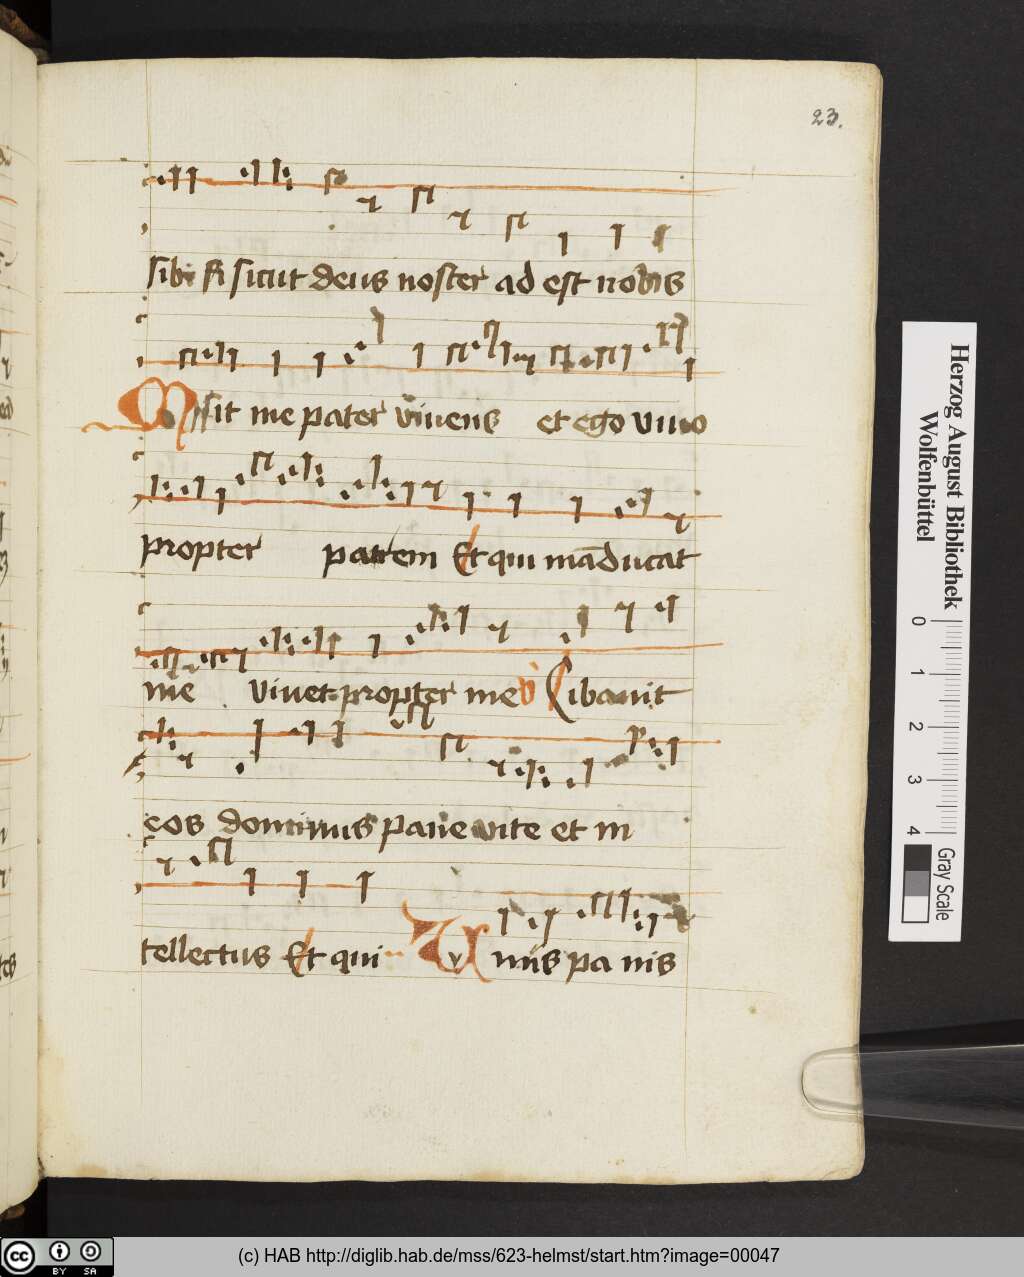 23.
sibi si sicut deus noster ad est nobis
Misit me pater vivens et ego vivo
propter patrem Et qui māducat
me vivet propter me v Cibavit
eos dominus pane vite et in
tellectus Et qui Unus panis
Herzog August Bibliothek
Wolfenbüttel
0 1 2 3 4
Gray Scale
(c) HAB http://diglib.hab.de/mss/623-helmst/start.htm?image=00047
cc BY SA